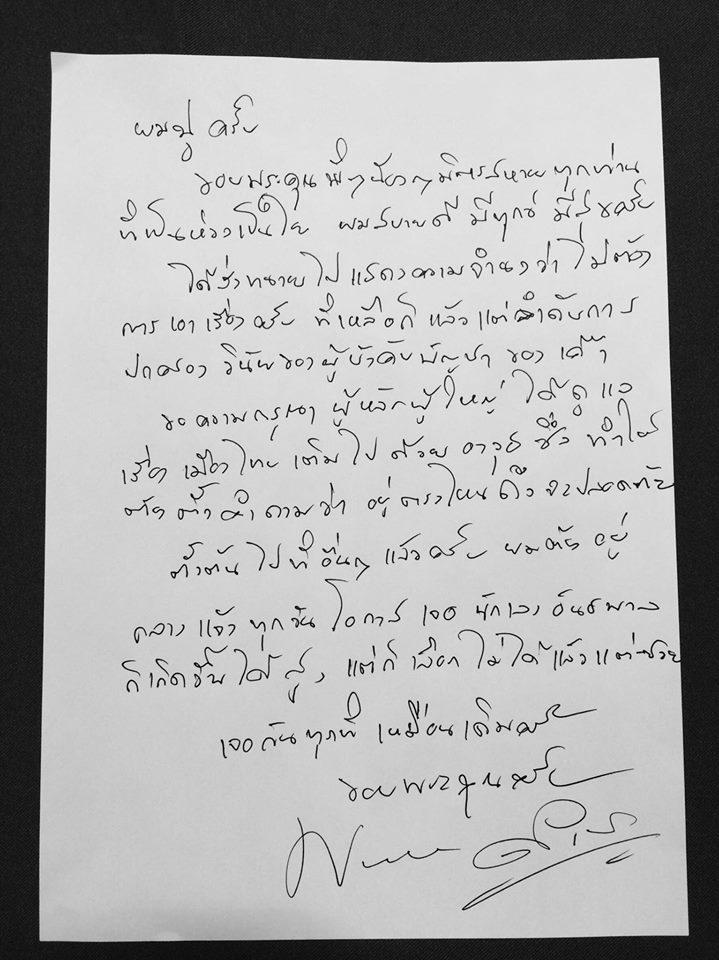 ผมปู ครับ
ขอบพระคุณ พี่ๆ น้องๆ มิตรสหาย ทุกท่าน
ที่เป็นห่วงเป็นใย ผมสบายดี มีทุกข์ มีสุขครับ
ได้ส่งทนายไป แสดงความจำนงว่า ไม่ต้อง
การ เอาเรื่องครับ ที่เหลือก็ แล้วแต่ลำดับการ
ปกครอง วินัยของผู้บังคับบัญชา ของ เค้า
ขอความกรุณา ผู้หลักผู้ใหญ่ ได้ดูแล
เรื่อง เมืองไทย เต็มไปด้วย อาวุธ ซึ่ง ทำให้
ต้อง ตั้งคำถามว่า อยู่ตรงไหนถึงจะปลอดภัย
ตั้งต้น ไปที่ อื่นๆ แล้วครับ ผมต้อง อยู่
กลางแจ้ง ทุกวัน โอกาส เจอ นักเลง อันธพาล
ก็เกิดขึ้นได้ สูง, แต่ก็ เลือก ไม่ได้ แล้วแต่ซวย
เจอกันทุกที่ เหมือนเดิมครับ
ขอบพระคุณครับ